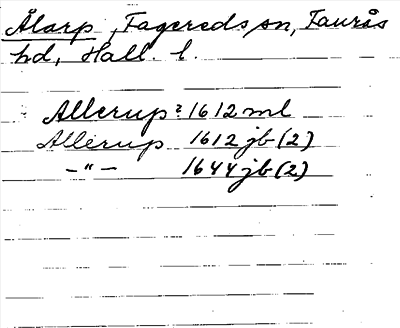 Ålarp, Fagereds sn, Faurås
hd, Hall. l.
Allerup? 1612 ml
Allerup 1612 jb (2)
-"- 1644 jb (2)